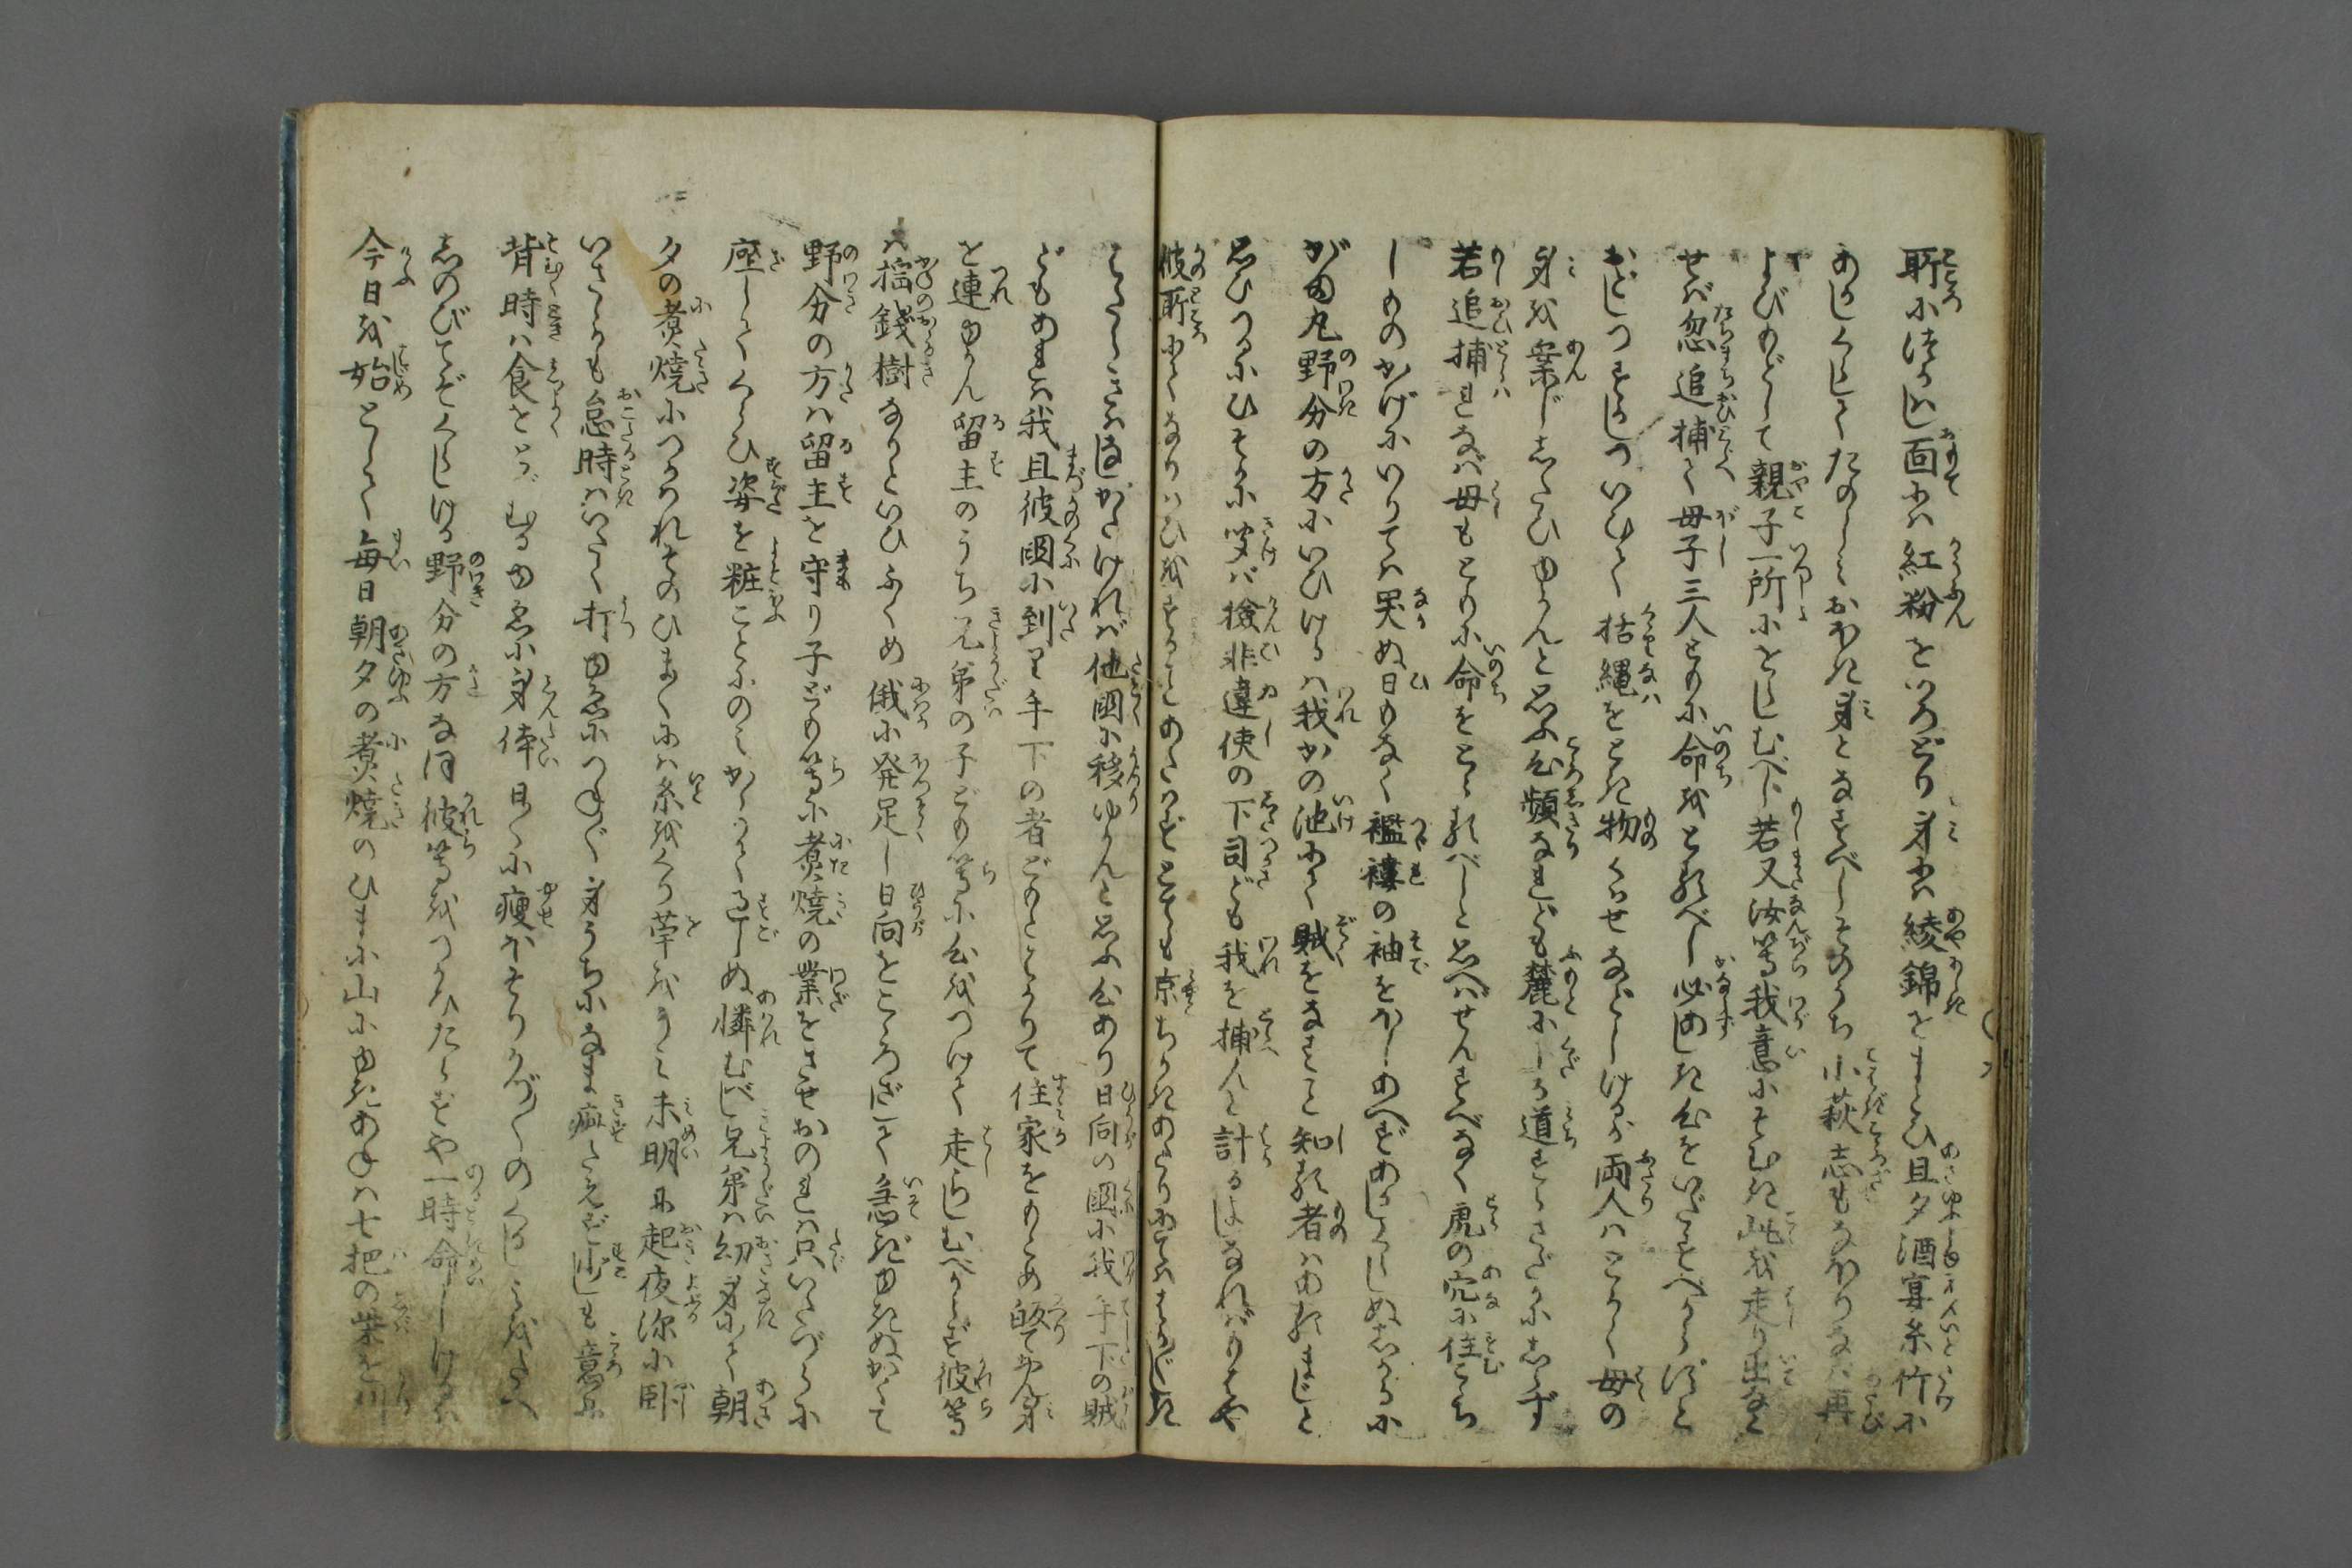 所につかはし面には紅粉をいろどり身には綾錦をまとひ且夕酒宴糸竹に
あかしくらしてたのしみおほき身となすべしそのうち小萩志もなほりなば再
よびもどして親子一所にをらしむべし若又汝等我意にそむき此を走り出なと
せば忽追捕て母子三人ともに命をとるべし必あしき心をいだすべからずと
おどしつすかしついひて括縄をとき物くはせなどしけるが両人はとかく母の
身を案じしたひゆかんと思ふ心頻なれども麓にしる道すらさだかにしらず
若追捕れなば母もともに命をとらるべしと思へばせんすべなく虎の穴に住こゝち
しものかげにいりては哭ぬ日もなく襤褸の袖をほしあへずあかしくらしぬしかるに
がま丸野分の方にいひけるは我かの池にて賊をなすこと知る者はあるまじと
思ひつるにひそかに聞けば検非違使の下司ども我を捕んと計るよしなればもはや
彼所にてなりはひをすることあたはずとても京ちかきあたりにてははかばかしき
ことしさはしがたければ他国に移ゆかんと思ふ心あり日向の国に我手下の賊
どもあれは我且彼国に到り手下の者どもとはかりて住家をもとめ皈て御身
を連ゆかん留主のうち兄弟の子ども等に心をつけて走らしむべからず彼等
は揺銭樹なりといひふくめ俄に発足し日向をこゝろざして急ぎゆきぬかくて
野分の方は留主を守り子ども等に煮焼の業をさせおのれは只いたづらに
座しくらひ姿を粧ことにのみかゝりて過しぬ憐むべし兄弟は幼身にて朝
夕の煮焼につかはれそのひまには糸をくり苧をうみ未明に起夜深に臥
いさゝかも怠時はいたく打ゆゑにつねに身うちになま疵たえず少しも意に
背時は食をとゞむるゆゑに身体日々に痩おとろへかず〳〵のくるしみをたへ
しのびてぞくらしける野分の方なほ彼等をつかひたらずや一時命しけるは
今日を始として毎日朝夕の煮焼のひまに山にゆきあねは七把の柴を刈